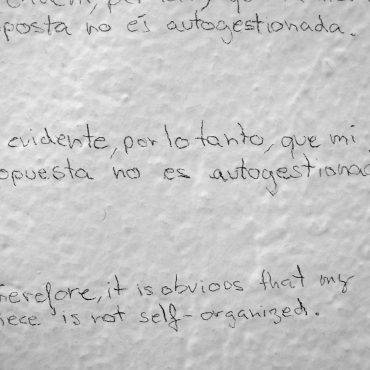 posta no és autogestionada.
evidente, por lo tanto, que mi
opuesta no es autogestionad
Therefore, it is obvious that my
iece is not self-organized.